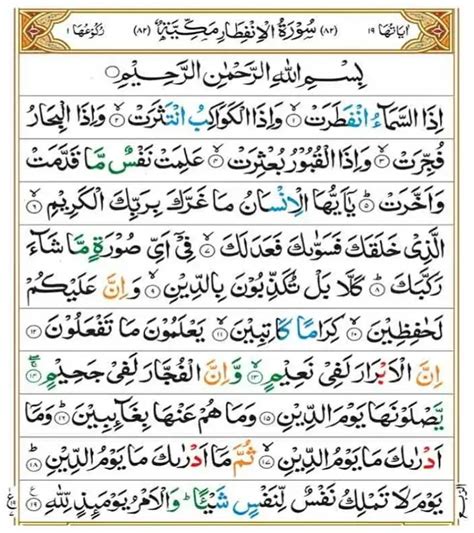 اٰیَاتُهَا ١٩ (٨٢) سُوْرَةُ الْاِنْفِطَارِ مَكِّیَّةٌ (٨٢) رُكُوْعُهَا ١
بِسْمِ اللّٰهِ الرَّحْمٰنِ الرَّحِیْمِ
اِذَا السَّمَآءُ انْفَطَرَتْ ۙ﴿١﴾ وَاِذَا الْكَوَاكِبُ انْتَثَرَتْ ۙ﴿٢﴾ وَاِذَا الْبِحَارُ
فُجِّرَتْ ۙ﴿٣﴾ وَاِذَا الْقُبُوْرُ بُعْثِرَتْ ۙ﴿٤﴾ عَلِمَتْ نَفْسٌ مَّا قَدَّمَتْ
وَاَخَّرَتْ ؕ﴿٥﴾ یٰۤاَیُّهَا الْاِنْسَانُ مَا غَرَّكَ بِرَبِّكَ الْكَرِیْمِ ۙ﴿٦﴾
الَّذِیْ خَلَقَكَ فَسَوّٰىكَ فَعَدَلَكَ ۙ﴿٧﴾ فِیْۤ اَیِّ صُوْرَةٍ مَّا شَآءَ
رَكَّبَكَ ؕ﴿٨﴾ كَلَّا بَلْ تُكَذِّبُوْنَ بِالدِّیْنِ ۙ﴿٩﴾ وَاِنَّ عَلَیْكُمْ
لَحٰفِظِیْنَ ۙ﴿١٠﴾ كِرَامًا كَاتِبِیْنَ ۙ﴿١١﴾ یَعْلَمُوْنَ مَا تَفْعَلُوْنَ ﴿١٢﴾
اِنَّ الْاَبْرَارَ لَفِیْ نَعِیْمٍ ۚ﴿١٣﴾ وَّاِنَّ الْفُجَّارَ لَفِیْ جَحِیْمٍ ۚ﴿١٤﴾
یَّصْلَوْنَهَا یَوْمَ الدِّیْنِ ﴿١٥﴾ وَمَا هُمْ عَنْهَا بِغَآىِٕبِیْنَ ؕ﴿١٦﴾ وَمَاۤ
اَدْرٰىكَ مَا یَوْمُ الدِّیْنِ ۙ﴿١٧﴾ ثُمَّ مَاۤ اَدْرٰىكَ مَا یَوْمُ الدِّیْنِ ؕ﴿١٨﴾
یَوْمَ لَا تَمْلِكُ نَفْسٌ لِّنَفْسٍ شَیْـًٔا ؕ وَالْاَمْرُ یَوْمَىِٕذٍ لِّلّٰهِ ﴿١٩﴾